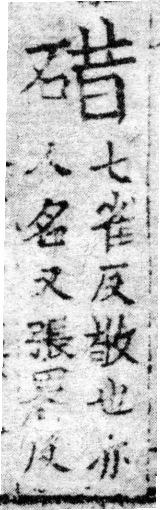 碏
七雀反敬也亦
人名又張畧反